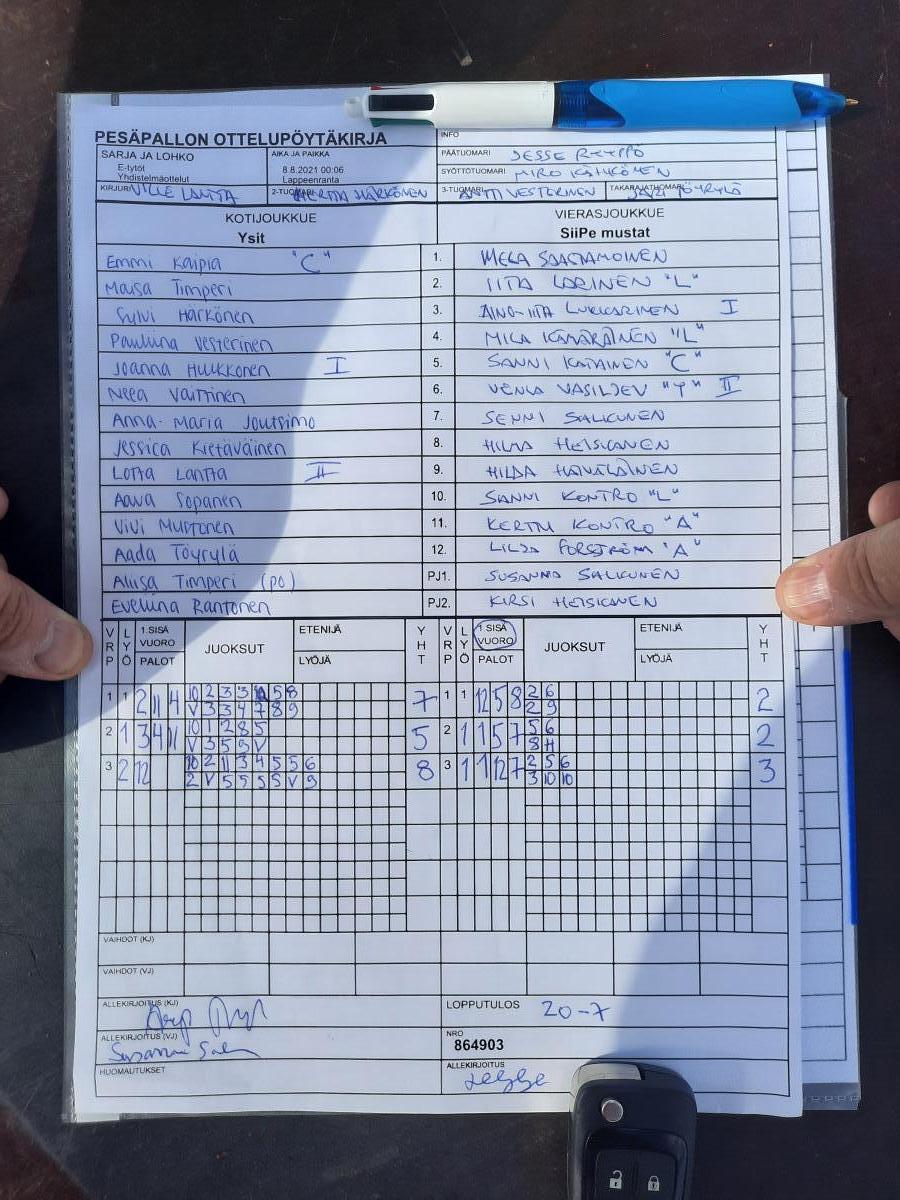 PESÄPALLON OTTELUPÖYTÄKIRJA
INFO
SARJA JA LOHKO
E-tytöt
Yhdistelmäottelut
AIKA JA PAIKKA
8.8.2021 00:06
Lappeenranta
PÄÄTUOMARI JESSE RYYPPÖ
SYÖTTÖTUOMARI MIRO KÄHKÖNEN
KIRJURI VILLE LANTTA
2-TUOMARI HERTTA HÄRKÖNEN
3-TUOMARI ANTTI VESTERINEN
TAKARAJATUOMARI TÖYRYLÄ
KOTIJOUKKUE
Ysit
VIERASJOUKKUE
SiiPe mustat
Emmi Kaipia "C" 1. MEEA SAASTAMOINEN
Maisa Timperi 2. IITA LARINEN "L"
Sylvi Härkönen 3. AINO-IITA LUKKARINEN I
Pauliina Vesterinen 4. MILA KÄMÄRÄINEN "L"
Joanna Hulkkonen I 5. SANNI KATAINEN "C"
Neea Vaittinen 6. VENLA VASILJEV "T" II
Anna-Maria Joutsimo 7. SENNI SALKUNEN
Jessica Kietäväinen 8. HILMA HEISKANEN
Lotta Lantta II 9. HILDA HÄMÄLÄINEN
Aava Sopanen 10. SANNI KONTRO "L"
Vivi Murtonen 11. KERTTU KONTRO "A"
Aada Töyrylä 12. LILJA FORSSTRÖM "A"
Aliisa Timperi (po) PJ1. SUSANNA SALKUNEN
Eveliina Rantonen PJ2. KIRSI HEISKANEN
VRP LYÖ 1.SISÄ VUORO PALOT JUOKSUT ETENIJÄ LYÖJÄ YHT VRP LYÖ 1.SISÄ VUORO PALOT JUOKSUT ETENIJÄ LYÖJÄ YHT
1 1 2 11 4 10 2 3 3 5 8 7 1 1 12 5 8 2 6 2
V 3 3 4 7 8 9 2 9
2 1 3 4 11 10 1 2 8 5 5 2 1 1 5 7 5 6 2
V 3 5 5 V 8 11
3 2 12 10 2 11 3 4 5 5 6 8 3 1 1 12 7 2 5 6 3
2 V 5 5 5 5 V 9 3 10 10
VAIHDOT (KJ)
VAIHDOT (VJ)
ALLEKIRJOITUS (KJ)
LOPPUTULOS 20-7
ALLEKIRJOITUS (VJ)
NRO
864903
HUOMAUTUKSET
ALLEKIRJOITUS